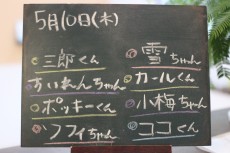 5月10日(木)
三郎くん
すいれんちゃん
ポッキーくん
ソフィちゃん
雪ちゃん
カールくん
小梅ちゃん
ココくん